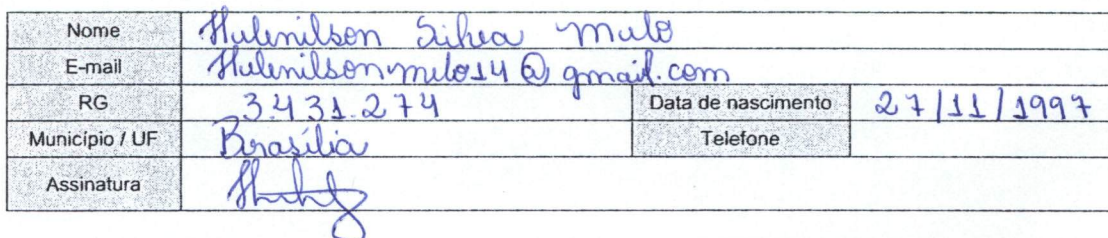 Nome Hulenilson Silva Melo
E-mail Hulenilsonmelo14@gmail.com
RG 3.431.274 Data de nascimento 27/11/1997
Município / UF Brasília Telefone
Assinatura